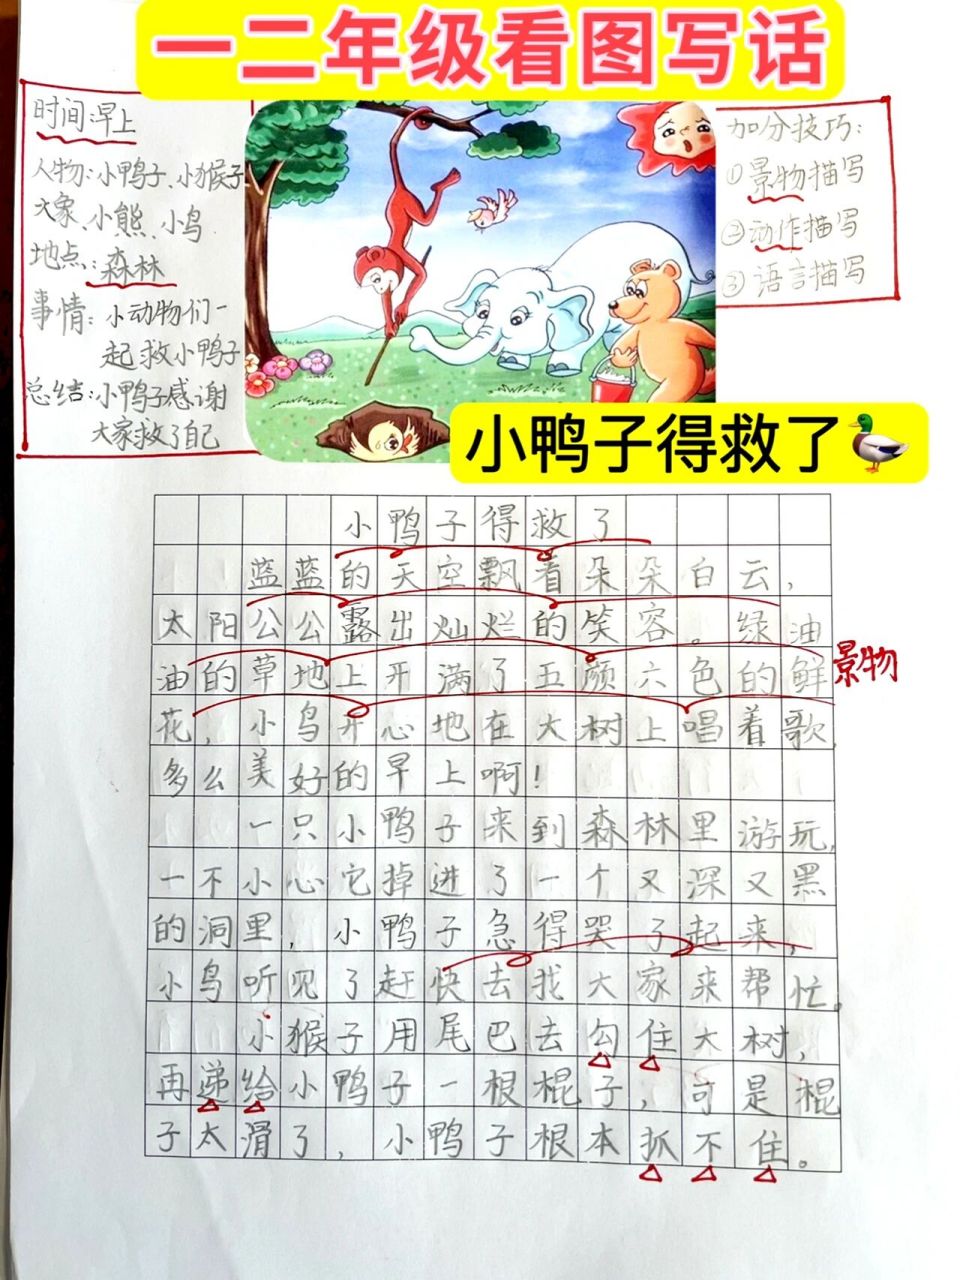 一二年级看图写话
时间:早上
人物:小鸭子、小猴子
大象、小熊、小鸟
地点:森林
事情:小动物们一
起救小鸭子
总结:小鸭子感谢
大家救了自己
加分技巧:
①景物描写
②动作描写
③语言描写
小鸭子得救了
小鸭子得救了
蓝蓝的天空飘着朵朵白云,
太阳公公露出灿烂的笑容。绿油
油的草地上开满了五颜六色的鲜
景物
花,小鸟开心地在大树上唱着歌,
多么美好的早上啊!
一只小鸭子来到森林里游玩,
一不小心它掉进了一个又深又黑
的洞里,小鸭子急得哭了起来,
小鸟听见了赶快去找大家来帮忙。
小猴子用尾巴去勾住大树,
再递给小鸭子一根棍子,可是棍
子太滑了,小鸭子根本抓不住。